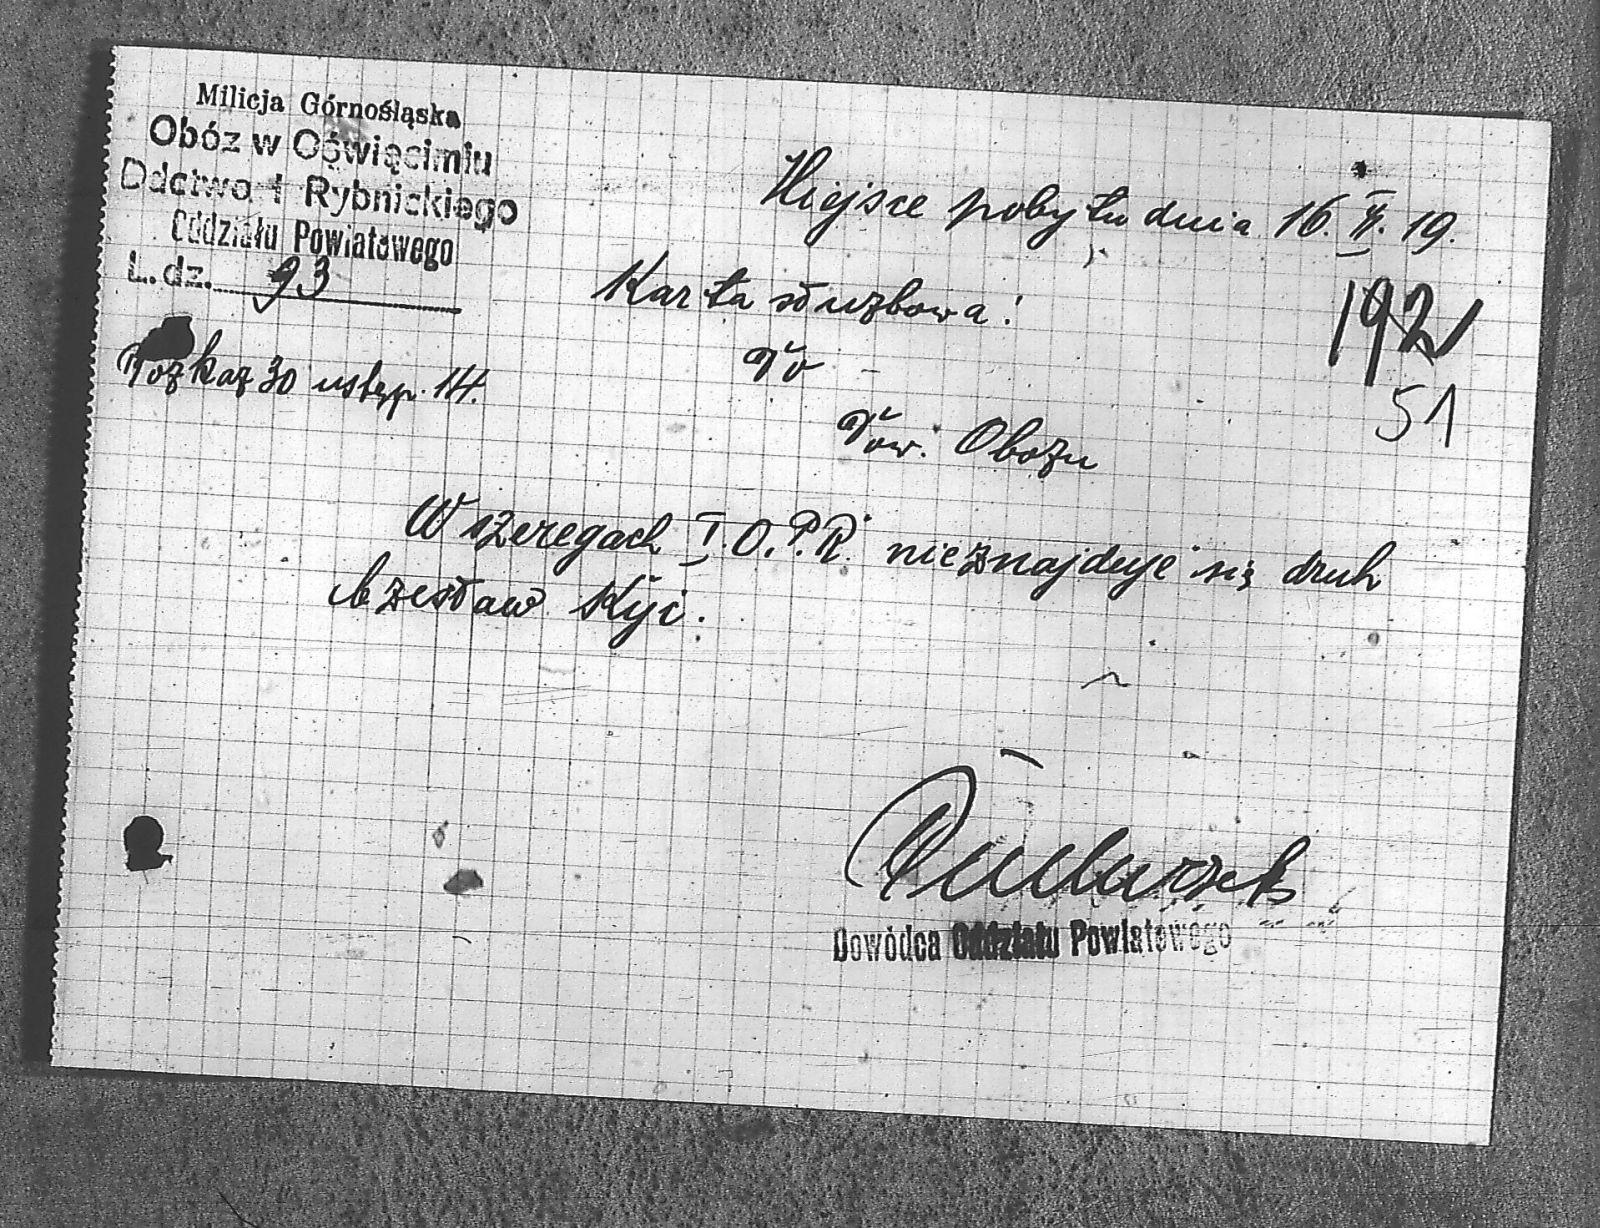 Milicja Górnośląska
Obóz w Oświęcimiu
Ddctwo I Rybnickiego
Oddziału Powiatowego
L. dz. 93
Miejsce pobytu dnia 16. II. 19.
Karta służbowa!
192
51
Rozkaz 30 ustęp. 14.
Do
Dow. Obozu
W szeregach I. O. P. R. nieznajduje się druh
Czesław Kyć.
Dowódca Oddziału Powiatowego